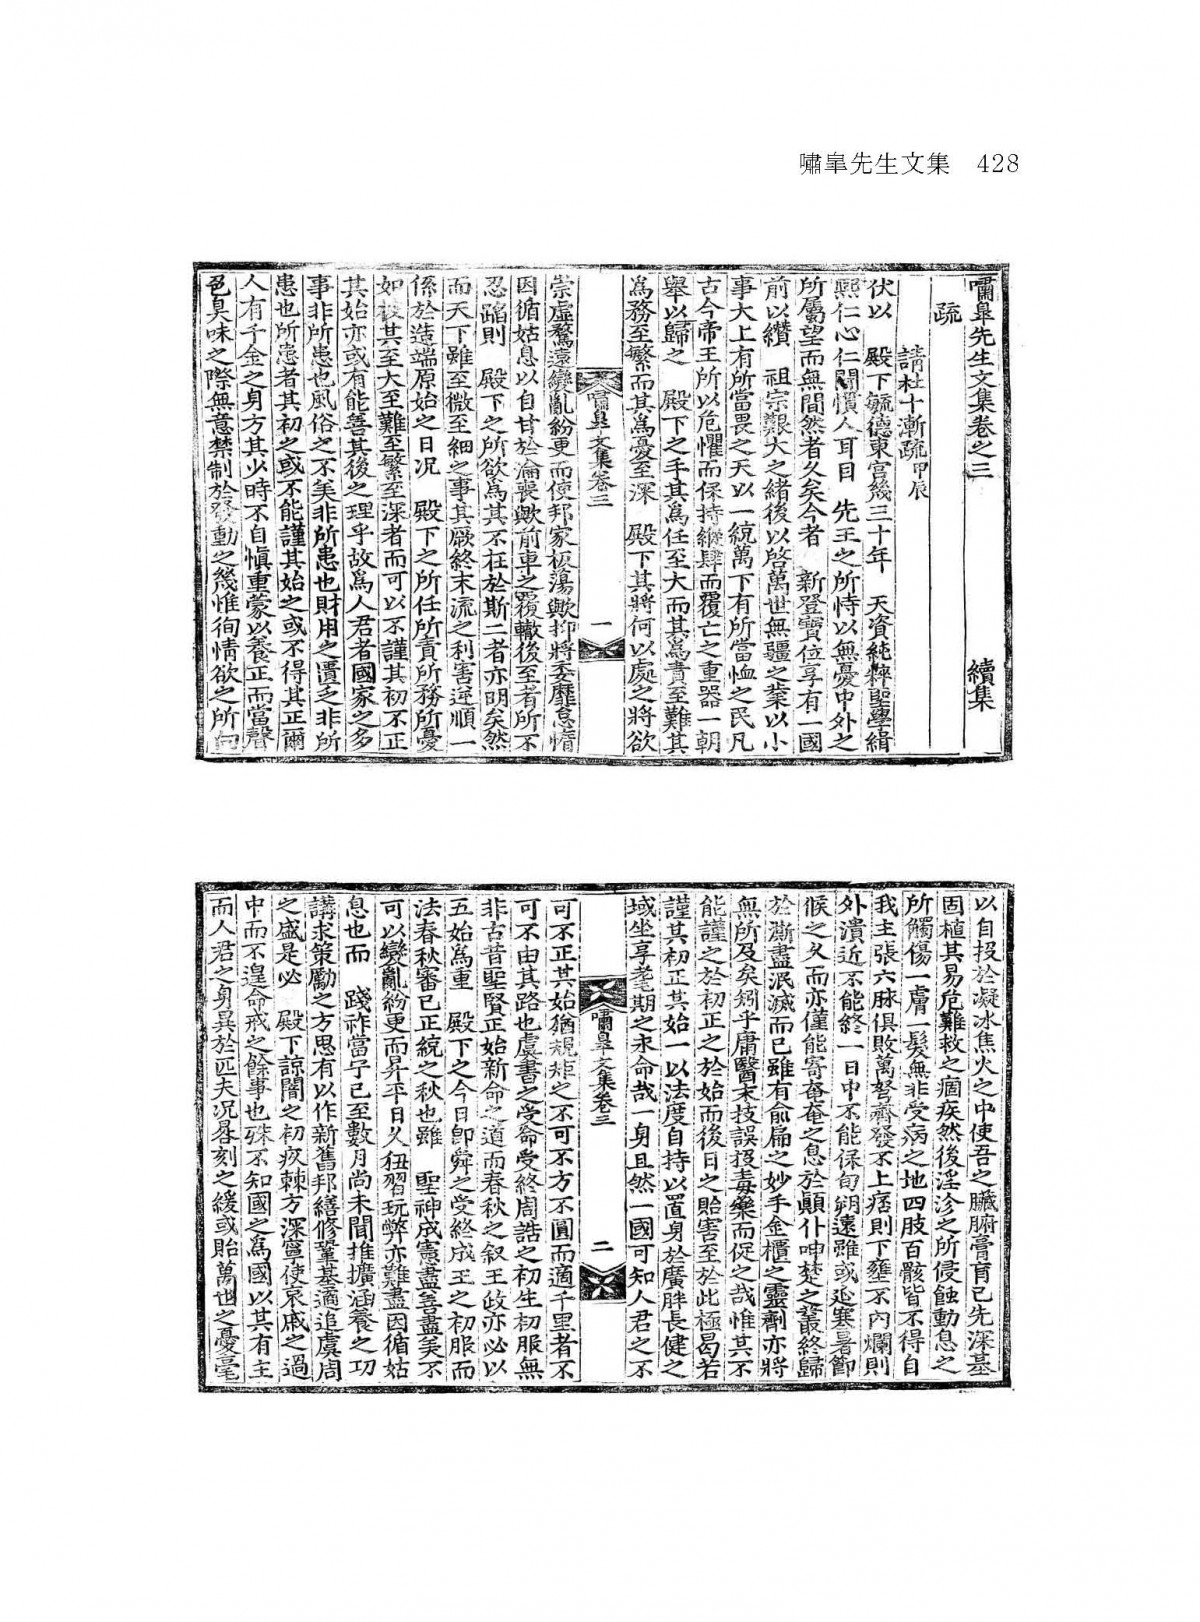 嘯皐先生文集　428
嘯皐先生文集卷之三　續集
疏
請杜十漸疏 甲辰
伏以　殿下毓德東宮幾三十年　天資純粹聖學緝
熙仁心仁聞慣人耳目　先王之所恃以無憂中外之
所屬望而無間然者久矣今者　新登寶位享有一國
前以纘　祖宗艱大之緖後以啓萬世無疆之業以小
事大上有所當畏之天以一統萬下有所當恤之民凡
古今帝王所以危懼而保持縱肆而覆亡之重器一朝
舉以歸之　殿下之手其爲任至大而其爲責至難其
爲務至繁而其爲憂至深　殿下其將何以處之將欲
嘯皐文集卷三　一
崇虛騖遠變亂紛更而使邦家板蕩歟抑將委靡怠惰
因循姑息以自甘於淪喪歟前車之覆轍後至者所不
忍蹈則　殿下之所欲爲其不在於斯二者亦明矣然
而天下雖至微至細之事其厥終末流之利害逆順一
係於造端原始之日况　殿下之所任所責所務所憂
如彼其至大至難至繁至深者而可以不謹其初不正
其始亦或有能善其後之理乎故爲人君者國家之多
事非所患也風俗之不美非所患也財用之匱乏非所
患也所患者其初之或不能謹其始之或不得其正爾
人有千金之身方其少時不自愼重蒙以養正而當聲
色臭味之際無意禁制於發動之幾惟徇情欲之所向
以自投於凝冰焦火之中使吾之臟腑膏肓已先深基
固植其易危難救之痼疾然後淫沴之所侵蝕動息之
所觸傷一膚一髮無非受病之地四肢百骸皆不得自
我主張六脉俱敗萬弩齊發不上痞則下壅不內爛則
外潰近不能終一日中不能保旬朔遠雖或延寒暑節
候之久而亦僅能寄奄奄之息於顚仆呻楚之叢終歸
於澌盡泯滅而已雖有俞扁之妙手金櫃之靈劑亦將
無所及矣矧乎庸醫末技誤投毒藥而促之哉惟其不
能謹之於初正之於始而後日之貽害至於此極曷若
謹其初正其始一以法度自持以置身於廣胖長健之
域坐享耄期之永命哉一身且然一國可知人君之不
嘯皐文集卷三　二
可不正其始猶規矩之不可不方不圓而適千里者不
可不由其路也虞書之受命受終周誥之初生初服無
非古昔聖賢正始新命之道而春秋之叙王政亦必以
五始爲重　殿下之今日卽舜之受終成王之初服而
法春秋審已正統之秋也雖　聖神成憲盡善盡美不
可以變亂紛更而昇平日久狃習玩弊亦難盡因循姑
息也而　踐祚當宁已至數月尚未聞推擴涵養之功
講求策勵之方思有以作新舊邦繕修鞏基適追虞周
之盛是必　殿下諒闇之初疚棘方深寧使哀戚之過
中而不遑命戒之餘事也殊不知國之爲國以其有主
而人君之身異於匹夫况晷刻之緩或貽萬世之憂毫